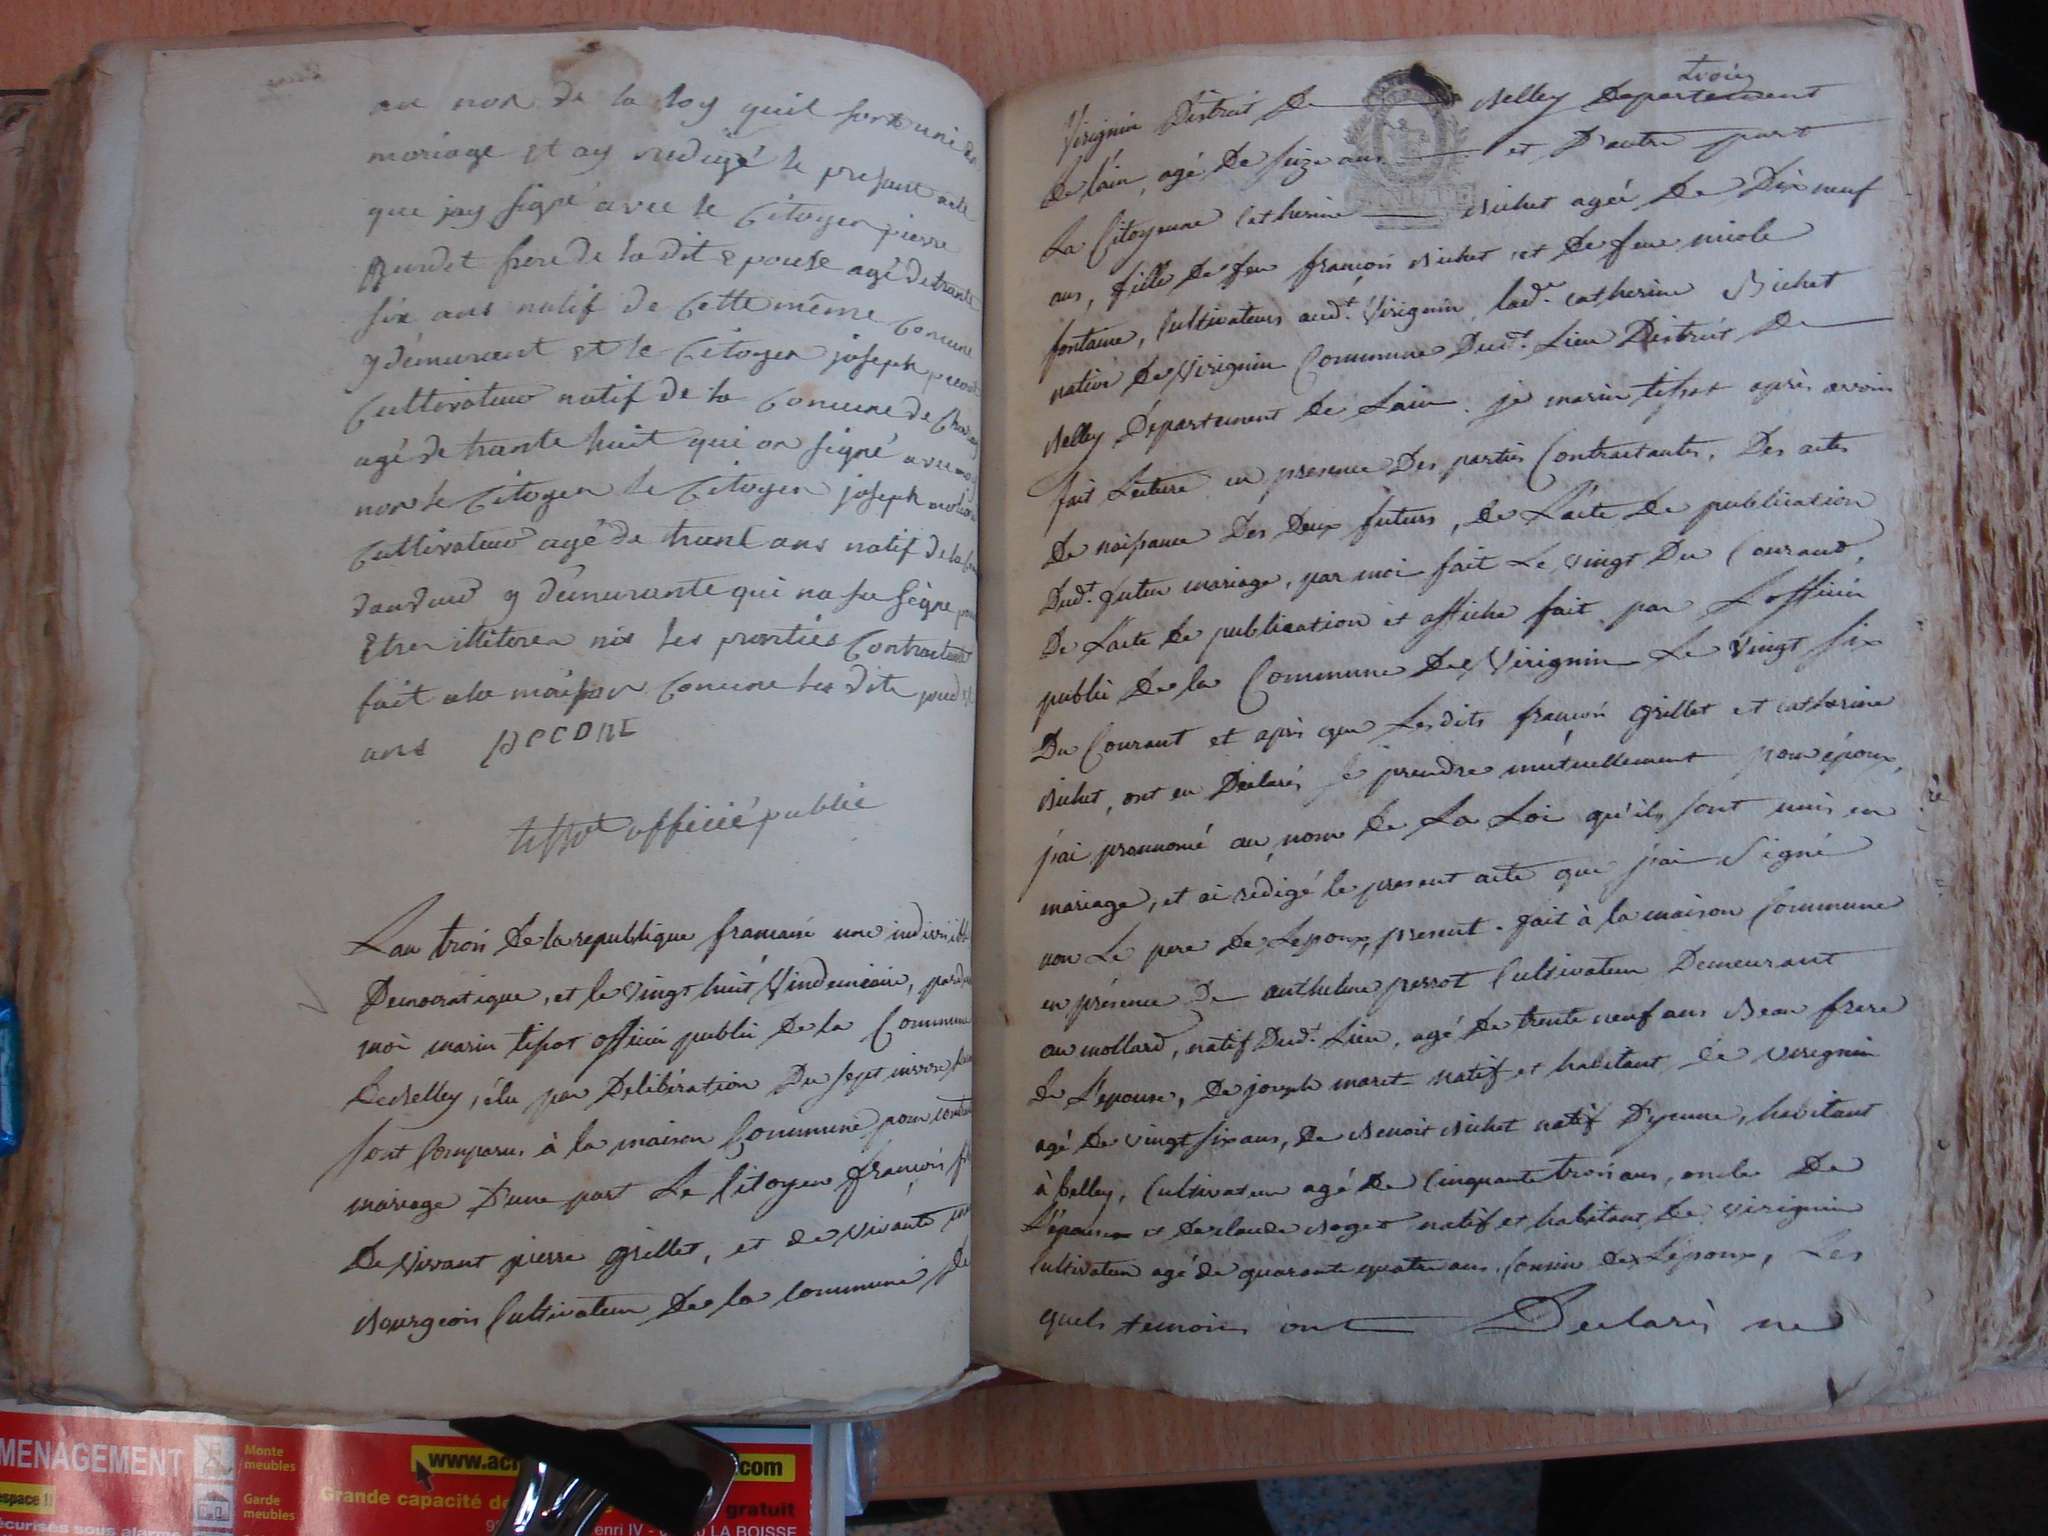 au nom de la loy quil sont uni en
mariage et ay redigé le present acte
que jay signé avec le Citoyen pierre
frere de la dit epouse agé de trante
six ans natif de Cette même Comune
y démurant et le Citoyen joseph
Cultivateur natif de la Comune de
agé de trante huit qui on signé avec moy
non le Citoyen le Citoyen joseph
Cultivateur agé de trant ans natif de la
y démurante qui na su signé pour
Etre illiteren nis les parties Contractant
fait a la maison Comune les dits jour et
ans
tissot officié public
Lan trois De la republique francaise une indivisible
Democratique, et le Vingt huit Vindemiaire, pard
moi marin tissot officier public De la Commune
De Belley, élu par Delibération Du sept nivose
sont Comparus à la maison Commune pour contra
mariage D'une part Le Citoyen françois fils
De vivant pierre Grillet, et de vivante
Bourgeois Cultivateur De la commune De
trois
Virignin District De Belley Departement
de l'ain, agé De seize ans et D'autre part
La Citoyenne Catherine Bichet agée De Dix neuf
ans, fille De feu françois Bichet et De feue nicole
fontaine, Cultivateurs aud.t Virignin, lad.e Catherine Bichet
native De Virignin Commune Dud.t Lieu District De
Belley Département De Lain. je marin tissot après avoir
fait Lecture en presence Des parties Contractantes, Des actes
De naissance Des Deux futurs, De L'acte De publication
Dud.t futur mariage, par moi fait Le Vingt Du Courant,
De L'acte De publication et affiche fait par L'officier
public De la Commune De Virignin Le Vingt six
Du Courant et après que Lesdits françois Grillet et Catherine
Bichet, ont eu Déclarés se prendre mutuellement pour époux,
j'ai prononcé au nom De La Loi qu'ils sont unis en
mariage, et ai rédigé le present acte que j'ai Signé
non Le pere De Lepoux, present. fait à la maison Commune
en présence De anthelme perrot Cultivateur Demeurant
au mollard, natif Dud.t Lieu, agé De trente neuf ans Beau frere
De L'epouse, De joseph maret natif et habitant de Virignin
agé De Vingt six ans, De Benoit Bichet natif D'yenne, habitant
à belley, Cultivateur agé De Cinquante trois ans, oncle De
L'épouse et De claude Roget natif et habitant De Virignin
Cultivateur agé de quarante quatre ans Cousin De L'époux, Les
quels temoins ont Declarés ne
MENAGEMENT
Monte
meubles
Garde
meubles
espace !!
www.ac
.com
Grande capacité de
gratuit
enri IV -
LA BOISSE
écurisés sous alarme